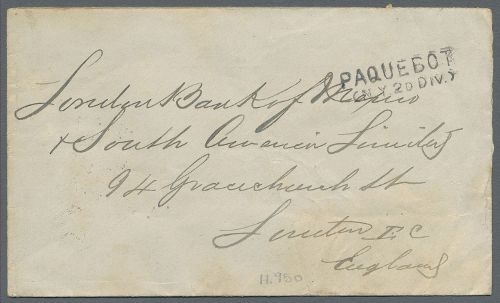 PAQUEBOT
(N.Y. 2D DIV.)
London Bank of Mexico
& South America Limited
94 Gracechurch St
London E C
England
11.950